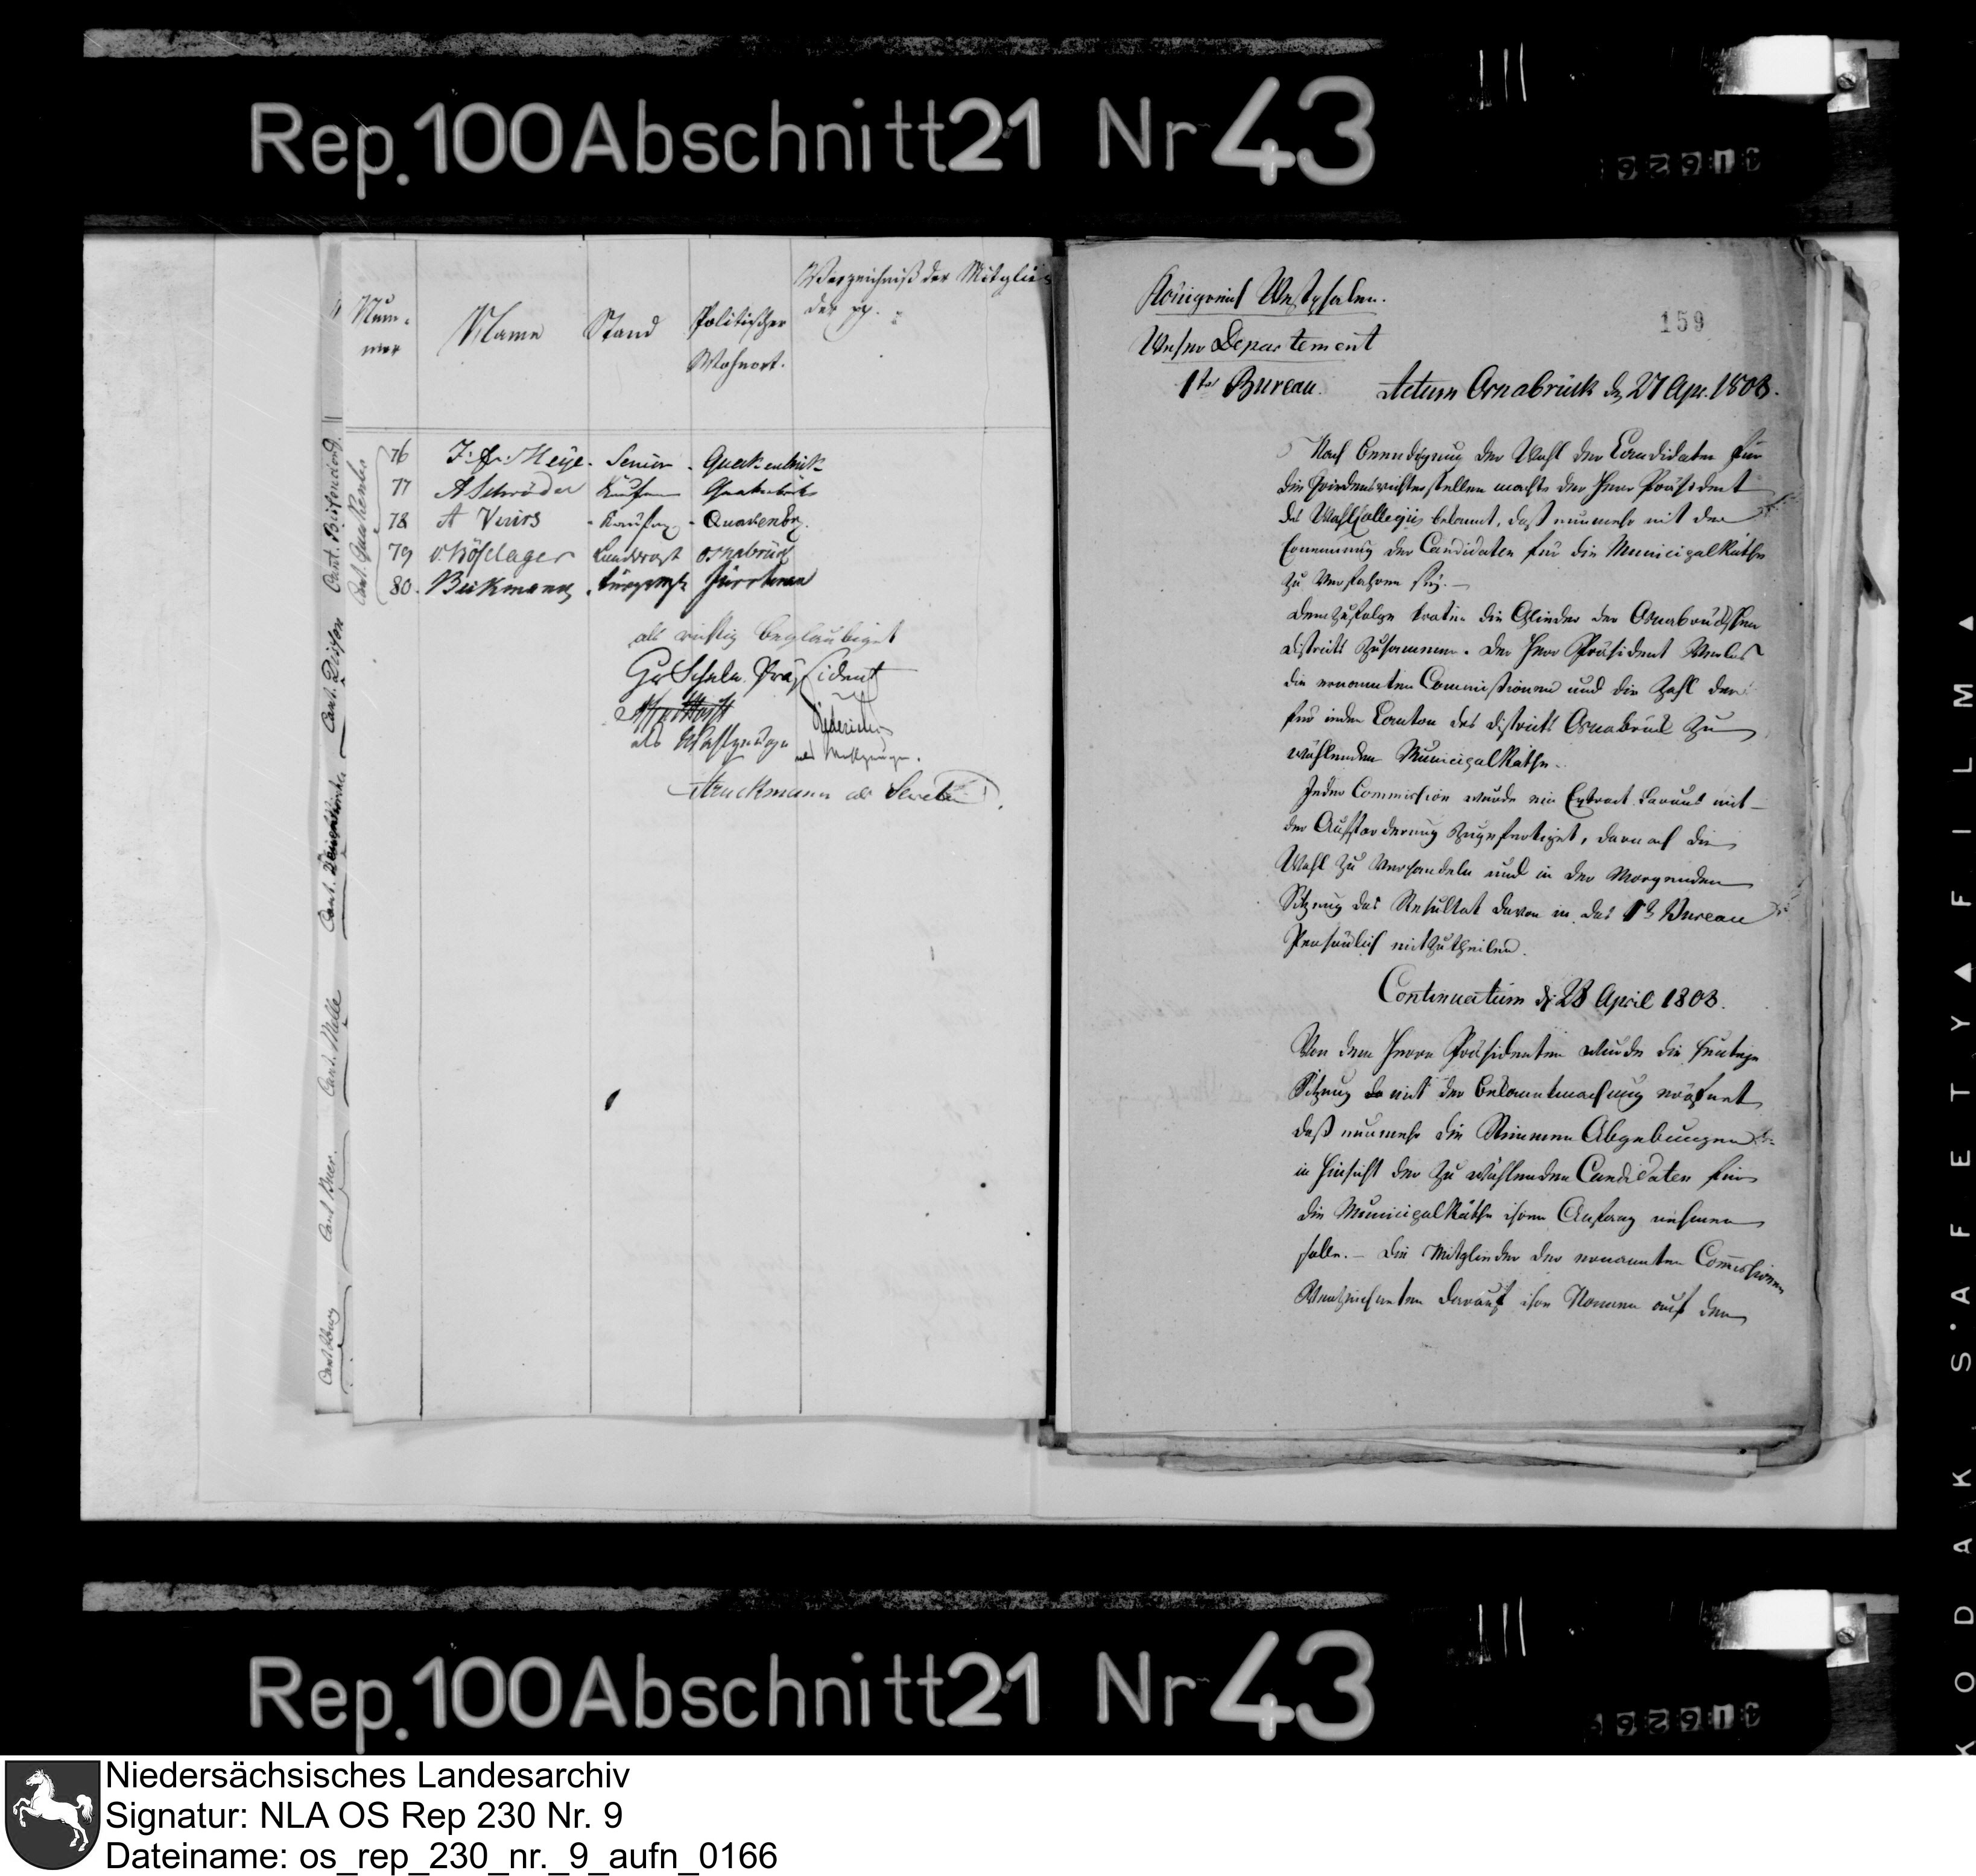 Rep. 100 Abschnitt 21 Nr 43
Num-
mer
Name
Stand
Politischer
Wohnort.
Verzeichniß der Mitglie-
der pp.
76 J. Meye. Senior. Quakenbrük
77 A Schröder Kaufm Quakenbrück
78 A Kaufm. Quakenbr.
79 v. Böselager Landdrost Osnabrück
80.
Cant. Quakenbr
Cant. Dissen
Cant. Melle
Cant Buer.
Cant Iburg
als richtig beglaubiget
Präsident
als Wahlzeuge
als Wahlzeuge.
Struckmann als Secretair
Königreich Westphalen.
Weser Departement
1tes Bureau.
159
Actum Osnabrück d 27 Apr. 1808.
Nach Beendigung der Wahl der Candidaten für
die Friedensrichterstellen machte der Herr Präsident
des WahlCollegii bekannt, daß nunmehr mit der
Ernennung der Candidaten für die MunicipalRäthe
zu verfahren sey.
Demzufolge traten die Glieder des Osnabrückschen
Districts zusammen. Der Herr Präsident verlas
die ernannten Commissionen und die Zahl der
für jeden Canton des Districts Osnabrück zu
wählenden MunicipalRäthe.
Jeder Commission wurde ein Extract daraus mit
der Aufforderung zugefertiget, darnach die
Wahl zu verhandeln und in der morgenden
Sitzung das Resultat davon in das 1te Bureau
persönlich mitzutheilen.
Continuatum d. 28 April 1808.
Von dem Herrn Präsidenten wurde die heutige
Sitzung mit der Bekanntmachung eröfnet
daß nunmehr die Stimmen Abgebungen
in Hinsicht der zu wählenden Candidaten für
die MunicipalRäthe ihren Anfang nehmen
solle. – Die Mitglieder der ernannten Commissionen
verzeichneten darauf ihre Namen auf den
KODAK S'AFETY FILM
Rep. 100 Abschnitt 21 Nr 43
Niedersächsisches Landesarchiv
Signatur: NLA OS Rep 230 Nr. 9
Dateiname: os_rep_230_nr._9_aufn_0166